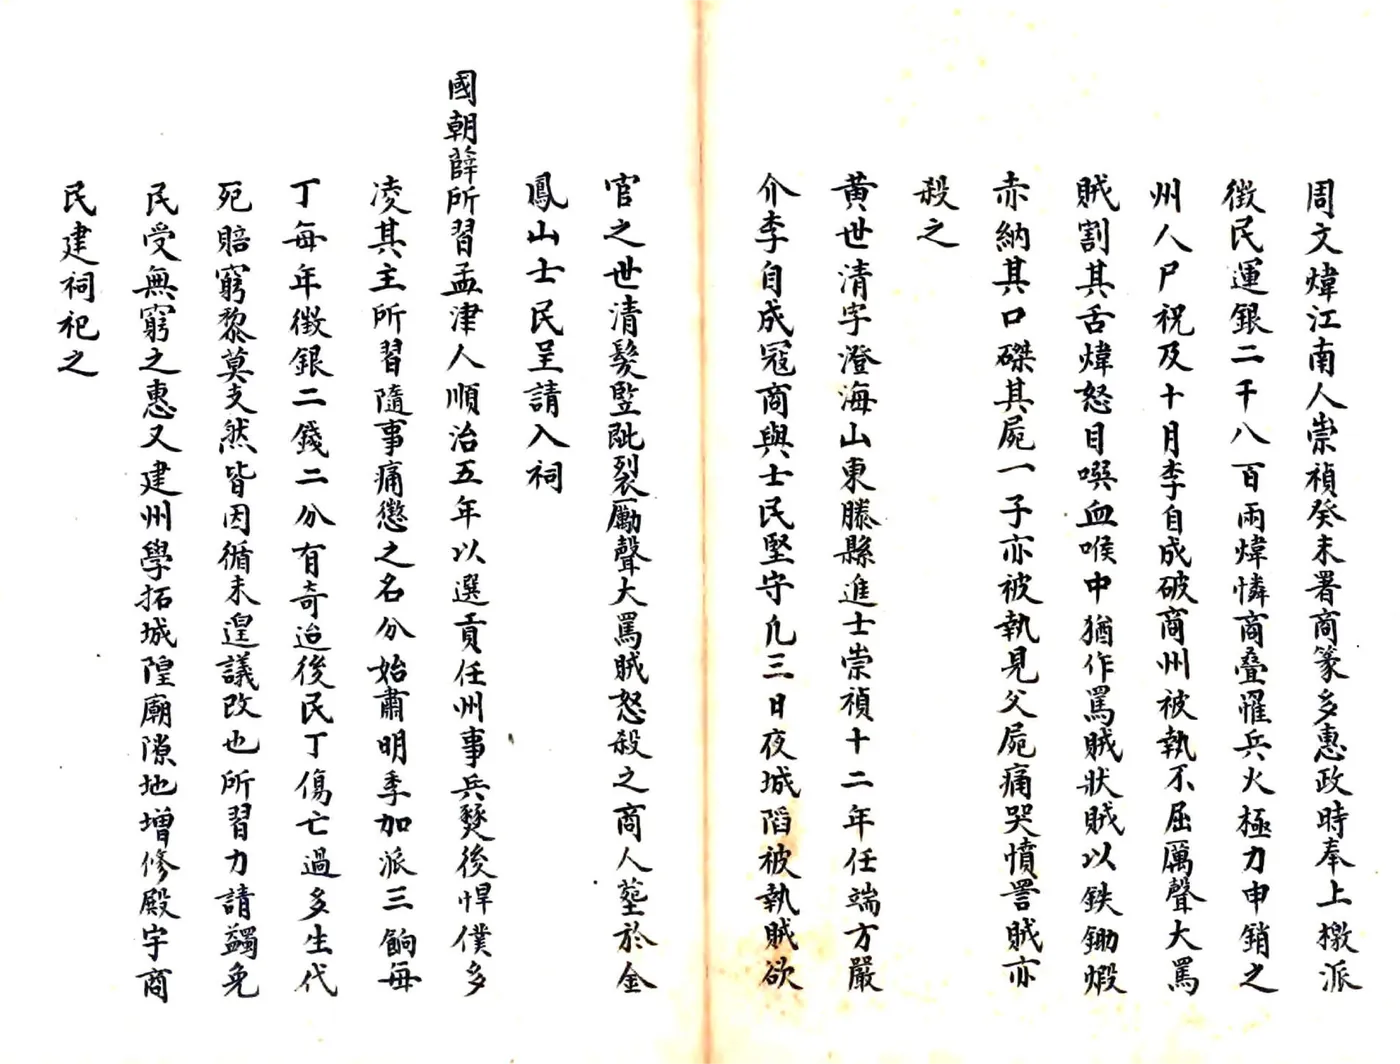 周文煒江南人崇禎癸未署商篆多惠政時奉上檄派
徵民運銀二千八百兩煒憐商叠罹兵火極力申銷之
州人尸祝及十月李自成破商州被執不屈厲聲大罵
賊割其舌煒怒目噀血喉中猶作罵賊狀賊以鉄鋤煅
赤納其口磔其屍一子亦被執見父屍痛哭憤詈賊亦
殺之
黄世清字澄海山東滕縣進士崇禎十二年任端方嚴
介李自成冦商與士民堅守凢三日夜城䧟被執賊欲
官之世清髮竪眦裂勵聲大罵賊怒殺之商人塟於金
鳳山士民呈請入祠
國朝薛所習孟津人順治五年以選貢任州事兵燹後悍僕多
凌其主所習隨事痛懲之名分始肅明季加派三餉每
丁每年徵銀二錢二分有奇迨後民丁傷亡過多生代
死賠窮黎莫支然皆因循未遑議改也所習力請蠲免
民受無窮之惠又建州學拓城隍廟隙地增修殿宇商
民建祠祀之